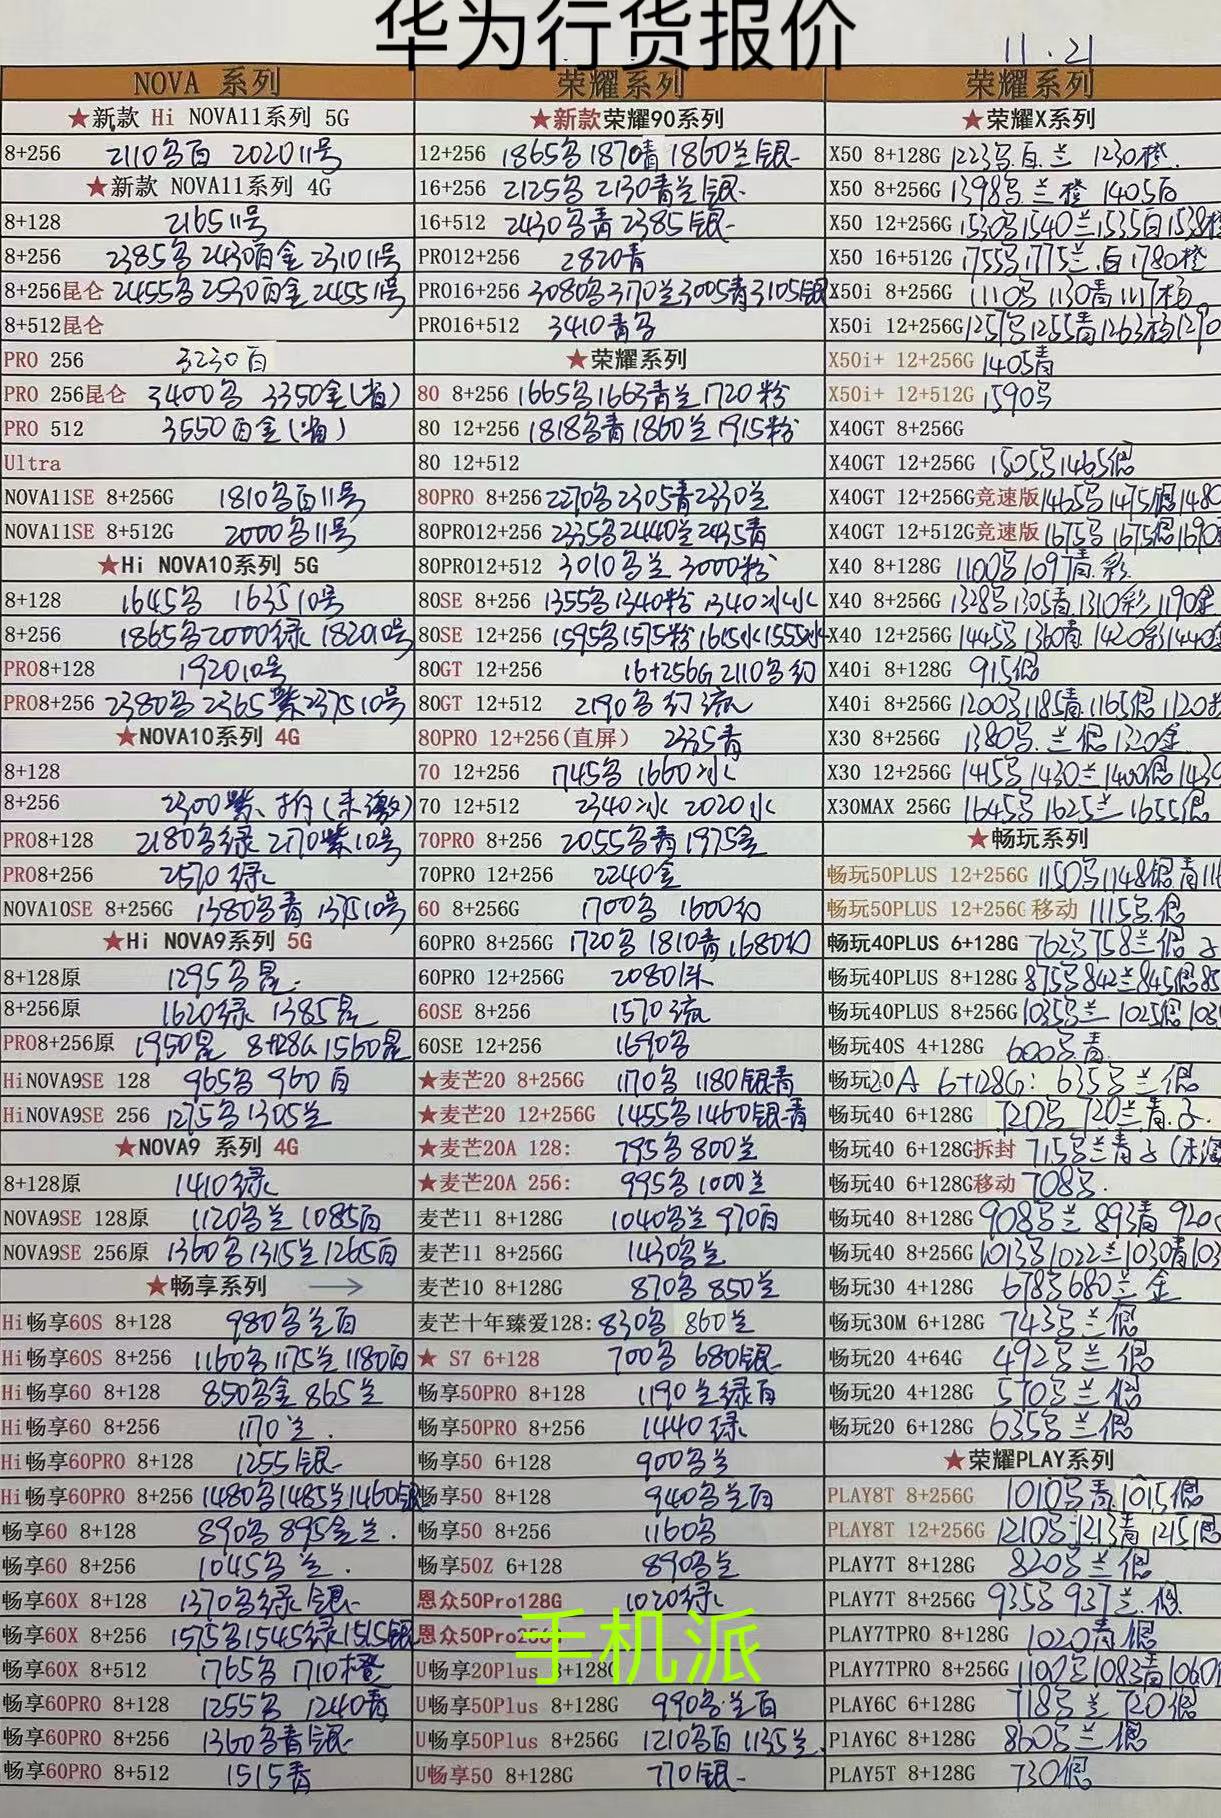 华为行货报价
11.21
NOVA 系列
★新款 Hi NOVA11系列 5G
8+256 2110多白 2020 11号
★新款 NOVA11系列 4G
8+128 2165 11号
8+256 2385多 2430百金 2310 11号
8+256昆仑 2455多 2530百金 2455 11号
8+512昆仑
PRO 256 3230百
PRO 256昆仑 3400多 3350金
PRO 512 3550百金
Ultra
NOVA11SE 8+256G 1810多百11号
NOVA11SE 8+512G 2000多11号
★Hi NOVA10系列 5G
8+128 1645多 1635 10号
8+256 1865多2000绿 1820 10号
PRO8+128 1920 10号
PRO8+256 2380多 2365紫 2375 10号
★NOVA10系列 4G
8+128
8+256 2300紫
PRO8+128 2180多绿 2170紫10号
PRO8+256 2570 绿
NOVA10SE 8+256G 1380多青 1375 10号
★Hi NOVA9系列 5G
8+128原 1295多
8+256原 1620绿 1385
PRO8+256原 1950 8+128G 1560
HiNOVA9SE 128 965多 960 百
HiNOVA9SE 256 1275多1305兰
★NOVA9 系列 4G
8+128原 1410绿
NOVA9SE 128原 1120多兰 1085百
NOVA9SE 256原 1360多1315兰1265百
★畅享系列
Hi畅享60S 8+128 980多兰百
Hi畅享60S 8+256 1160多1175兰1180百
Hi畅享60 8+128 850多金 865兰
Hi畅享60 8+256 1170兰.
Hi畅享60PRO 8+128 1255银
Hi畅享60PRO 8+256 1480多1485兰1460银
畅享60 8+128 890多 895金兰.
畅享60 8+256 1045多兰.
畅享60X 8+128 1370多绿 银
畅享60X 8+256 1575多1545绿1515银
畅享60X 8+512 1765多 1710橙
畅享60PRO 8+128 1255多 1240青
畅享60PRO 8+256 1360多青银
畅享60PRO 8+512 1515青
荣耀系列
★新款荣耀90系列
12+256 1865多1870青1860兰银
16+256 2125多 2130青兰银
16+512 2430多青 2385银
PRO12+256 2820青
PRO16+256 3080多3170兰3005青3105银
PRO16+512 3410青多
★荣耀系列
80 8+256 1665多1663青兰 1720粉
80 12+256 1818多青1860兰1915粉
80 12+512
80PRO 8+256 2270多2305青2330兰
80PRO12+256 2335多2440兰2435青
80PRO12+512 3010多兰 3000粉
80SE 8+256 1355多1340粉
80SE 12+256 1595多1575粉
80GT 12+256 16+256G 2110多幻
80GT 12+512 2190多幻流
80PRO 12+256(直屏) 2335青
70 12+256 1745多 1660冰
70 12+512 2340冰 2020水
70PRO 8+256 2055多青1975金
70PRO 12+256 2240金
60 8+256G 1700多 1600幻
60PRO 8+256G 1720多 1810青1680幻
60PRO 12+256G 2080
60SE 8+256 1570流
60SE 12+256 1690多
★麦芒20 8+256G 1170多 1180银青
★麦芒20 12+256G 1455多1460银青
★麦芒20A 128: 795多800兰
★麦芒20A 256: 995多1000兰
麦芒11 8+128G 1040多兰 970百
麦芒11 8+256G 1430多兰
麦芒10 8+128G 870多 850兰
麦芒十年臻爱128: 830多 860兰
★ S7 6+128 700多 680银
畅享50PRO 8+128 1190兰绿百
畅享50PRO 8+256 1440绿
畅享50 6+128 900多兰
畅享50 8+128 940多兰百
畅享50 8+256 1160多
畅享50Z 6+128 890多兰
恩众50Pro128G 1020绿
恩众50Pro256
手机派
U畅享20Plus 8+128G
U畅享50Plus 8+128G 990多兰百
U畅享50Plus 8+256G 1210多百1135兰.
U畅享50 8+128G 770银
荣耀系列
★荣耀X系列
X50 8+128G 1223多.百.兰 1230橙.
X50 8+256G 1398多.兰橙 1405百
X50 12+256G 1530多1540兰1535百1538橙
X50 16+512G 1755多1775兰.百1780橙
X50i 8+256G 1110多 1130青 1117杨
X50i 12+256G 1257多1255青1263杨1290
X50i+ 12+256G 1405青
X50i+ 12+512G 1590多
X40GT 8+256G
X40GT 12+256G 1505多1465银
X40GT 12+256G竞速版 1465多1475银1480
X40GT 12+512G竞速版 1675多 1675银1690
X40 8+128G 1100多1097青.彩.
X40 8+256G 1328多1305青.1310彩 1190金
X40 12+256G 1445多 1360青 1420彩1440
X40i 8+128G 915银
X40i 8+256G 1200多1185青.1165银 1120
X30 8+256G 1380多.兰银1320金
X30 12+256G 1415多1430兰1400银1430
X30MAX 256G 1645多1625兰1655银
★畅玩系列
畅玩50PLUS 12+256G 1150多1148银青
畅玩50PLUS 12+256G 移动 1115多.银
畅玩40PLUS 6+128G 762多758兰银
畅玩40PLUS 8+128G 875多842兰845银85
畅玩40PLUS 8+256G 1035多兰 1025银 103
畅玩40S 4+128G 600多青.
畅玩20A 6+128G: 635多兰银
畅玩40 6+128G 720多 720兰青.
畅玩40 6+128G拆封 715多兰青
畅玩40 6+128G移动 708多.
畅玩40 8+128G 908多兰 893青 920
畅玩40 8+256G 1013多1022兰1030青103
畅玩30 4+128G 678多680兰金
畅玩30M 6+128G 743多兰银
畅玩20 4+64G 492多兰银
畅玩20 4+128G 570多兰银
畅玩20 6+128G 635多兰银
★荣耀PLAY系列
PLAY8T 8+256G 1010多青.1015银
PLAY8T 12+256G 1210多1213青1215银
PLAY7T 8+128G 820多兰银
PLAY7T 8+256G 935多 937兰.银.
PLAY7TPRO 8+128G 1020青银
PLAY7TPRO 8+256G 1100多1083青1060
PLAY6C 6+128G 718多兰 720银
PlAY6C 8+128G 860多兰银
PLAY5T 8+128G 730银